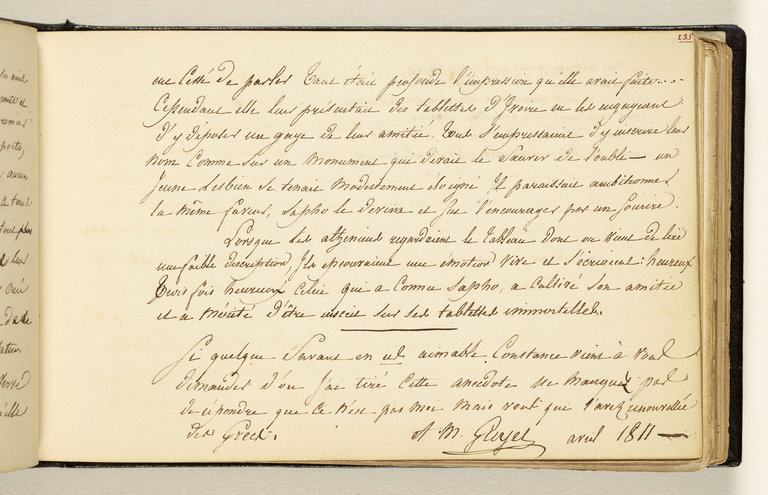 135
eut Cessé de parler tant était profonde l'impression qu'elle avait faite....
Cependant elle leur présentait des tablettes d'Ivoire en les engageant
d'y déposer un gage de leur amitié. tous s'empressaient d'y inscrire leur
nom Comme sur un monument qui devait le Sauver de l'oubli — un
jeune Lesbien se tenait modestement éloigné Il paraissait ambitionner
la même faveur, Sapho le devina et sut l'encourager par un sourire.
Lorsque les athéniens regardaient le tableau dont on vient de lire
une faible description, Ils éprouvaient une émotion vive et s'écriaient: heureux
trois fois heureux celui qui a Connu Sapho, a Cultivé Son amitié
et a mérité d'être inscrit sur ses tablettes immortelles.
Si quelque Savant en us aimable Constance vient à vous
demander d'où j'ai tiré cette anecdote ne manquez pas
de répondre que ce n'est pas moi mais vous qui l'avez renouvellée
des Grecs.
avril 1811 —